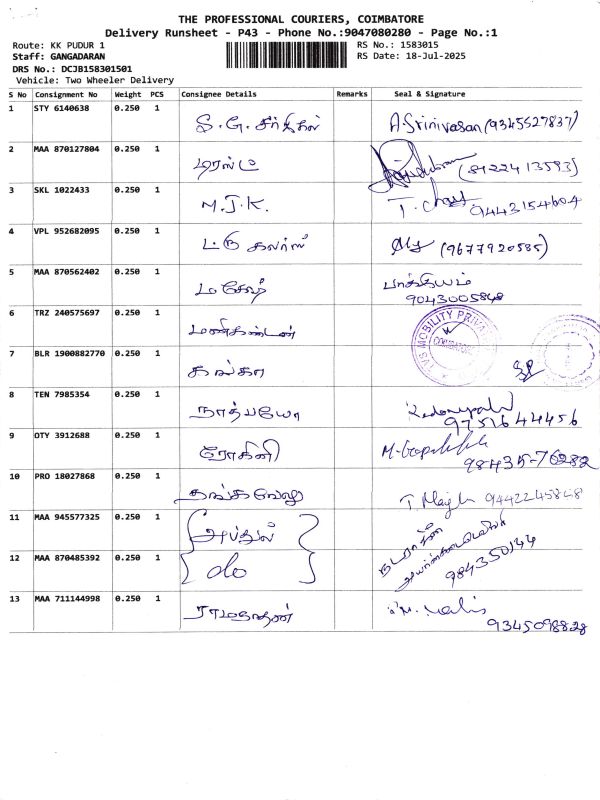 THE PROFESSIONAL COURIERS, COIMBATORE
Delivery Runsheet - P43 - Phone No.:9047080280 - Page No.:1
Route: KK PUDUR 1 RS No.: 1583015
Staff: GANGADARAN RS Date: 18-Jul-2025
DRS No.: DCJB158301501
Vehicle: Two Wheeler Delivery
S No Consignment No Weight PCS Consignee Details Remarks Seal & Signature
1 STY 6140638 0.250 1 A. Srinivasan (9345527837)
2 MAA 870127804 0.250 1 (8122413593)
3 SKL 1022433 0.250 1 M.J.K. 9443154604
4 VPL 952682095 0.250 1 (9677920585)
5 MAA 870562402 0.250 1 மகேஷ் பாக்கியம்
9043005848
6 TRZ 240575697 0.250 1 மணிகண்டன் TVS MOBILITY PRIVATE
7 BLR 1900882770 0.250 1 கங்கா
8 TEN 7985354 0.250 1 9751644456
9 OTY 3912688 0.250 1 ரோகினி 98435-76282
10 PRO 18027868 0.250 1 தங்கவேலு 9442245848
11 MAA 945577325 0.250 1 அப்துல் நடராசன்
12 MAA 870485392 0.250 1 do
13 MAA 711144998 0.250 1 ராமநாதன்
9345098828